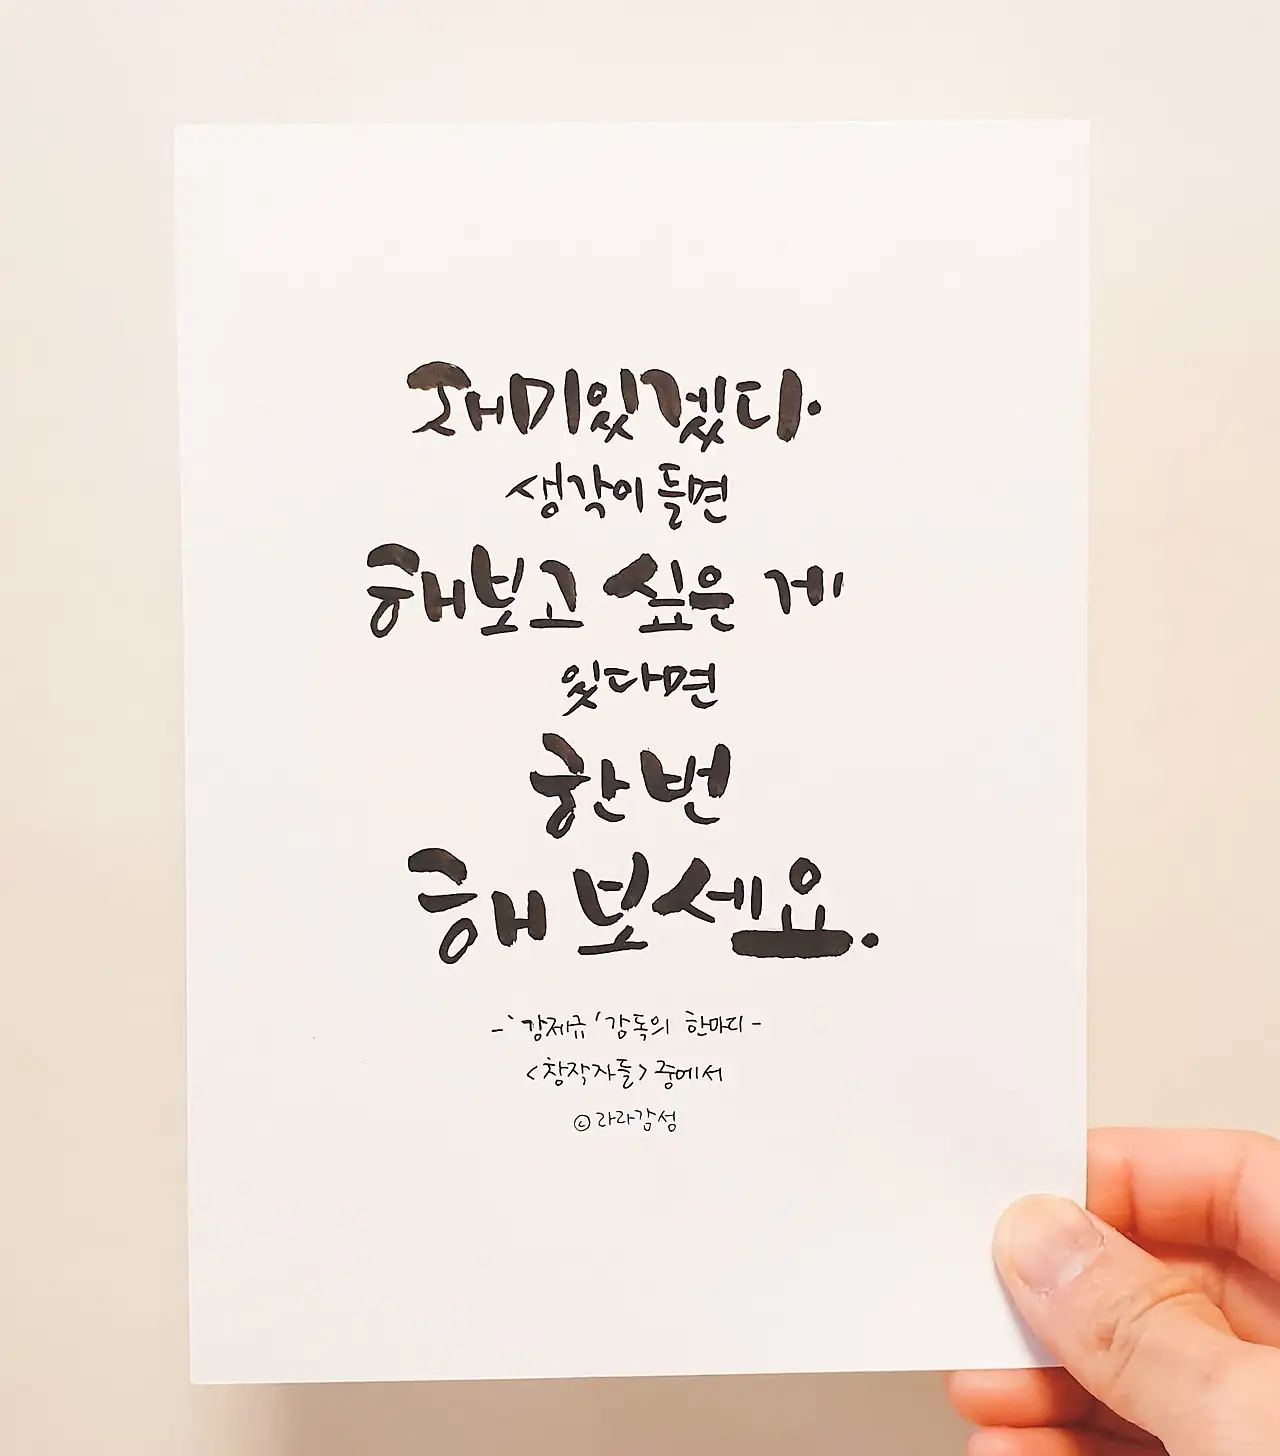 재미있겠다.
생각이 들면
해보고 싶은 게
있다면
한번
해 보세요.
-'강제규' 감독의 한마디-
<창작자들> 중에서
©라라감성